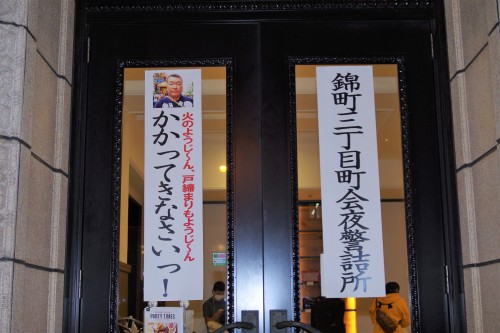 錦町三丁目町会夜警詰所
火のようじ〜ん、戸締まりもようじ〜ん
かかってきなさいっ!
PARTY TIMES